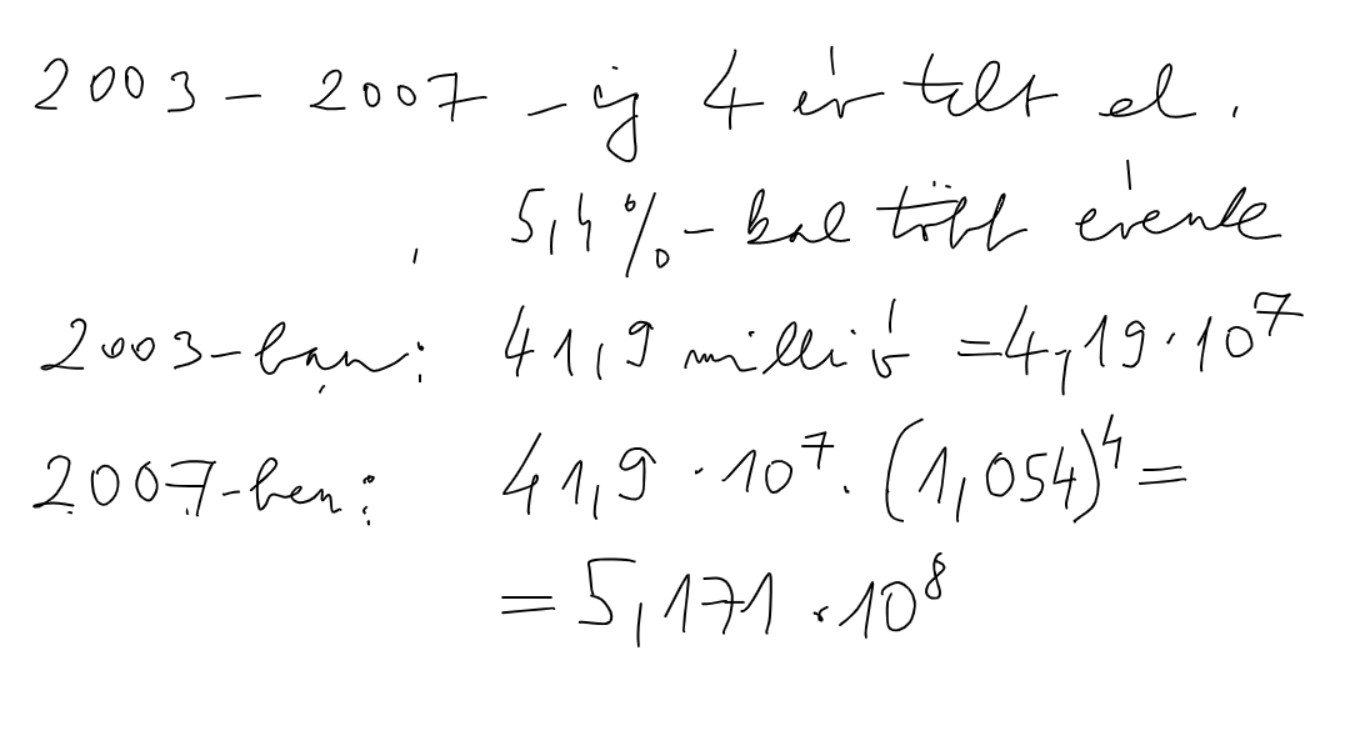 2003 – 2007 – ig 4 év telt el.
5,4%-kal több évente
2003-ban: 41,9 millió = 4,19 · 10⁷
2007-ben: 41,9 · 10⁷ · (1,054)⁴ =
= 5,171 · 10⁸